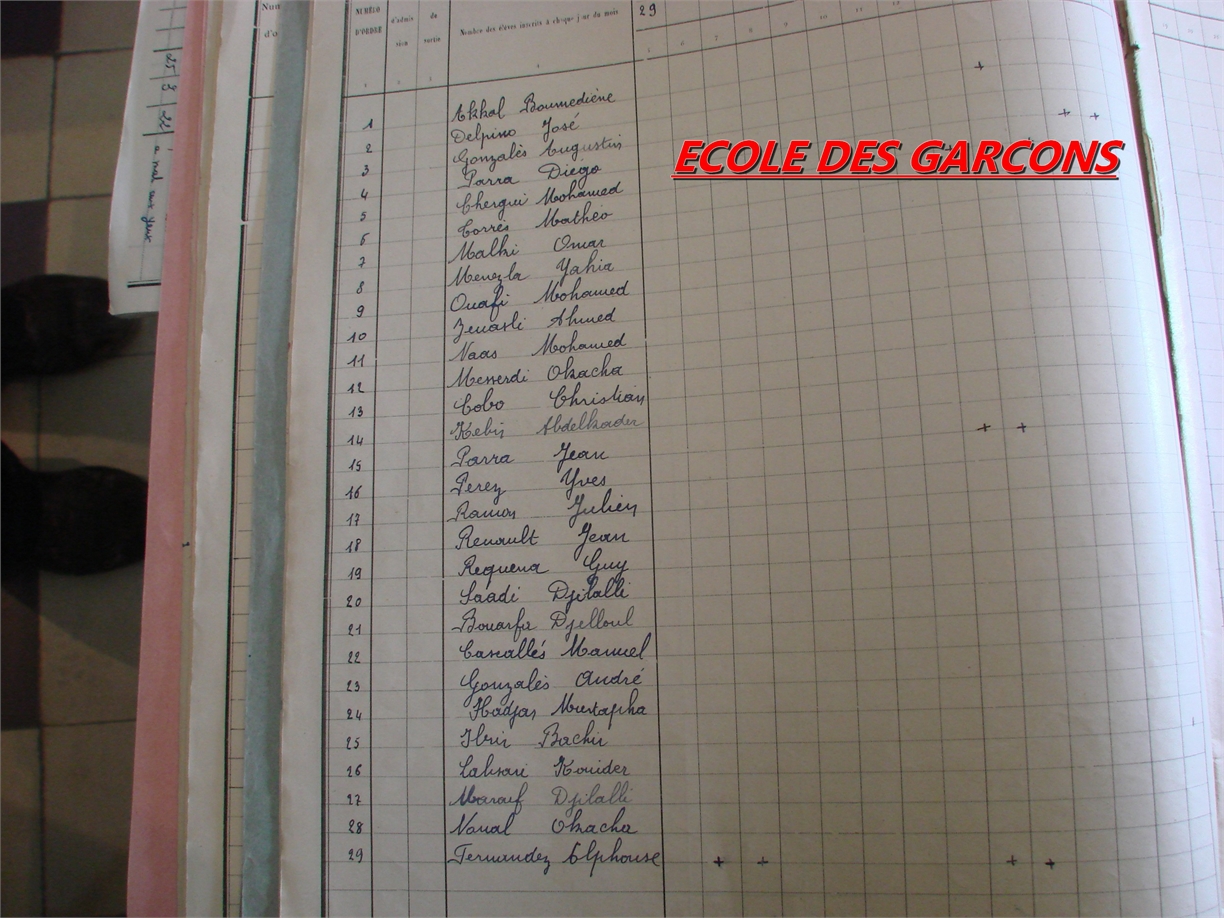 Num
d'o
25 8 22 a mal aux yeux
NUMÉRO D'ORDRE
d'admis sion
de sortie
Nombre des élèves inscrits à chaque jour du mois
29
1 Akkal Boumediène
2 Delpino José
3 Gonzalès Augustin
4 Parra Diégo
5 Chergui Mohamed
6 Torrès Mathéo
7 Malki Omar
8 Menezla Yahia
9 Ouafi Mohamed
10 Zenasli Ahmed
11 Naas Mohamed
12 Messerdi Okacha
13 Cobo Christian
14 Kebir Abdelkader
15 Parra Jean
16 Perez Yves
17 Ramon Julien
18 Renault Jean
19 Requena Guy
20 Saadi Djilalli
21 Bouarfa Djelloul
22 Cascallès Manuel
23 Gonzalès André
24 Hadjar Mustapha
25 Ibrir Bachir
26 Lahsari Kouider
27 Marouf Djilalli
28 Naual Okacha
29 Fernandez Alphonse
ECOLE DES GARCONS